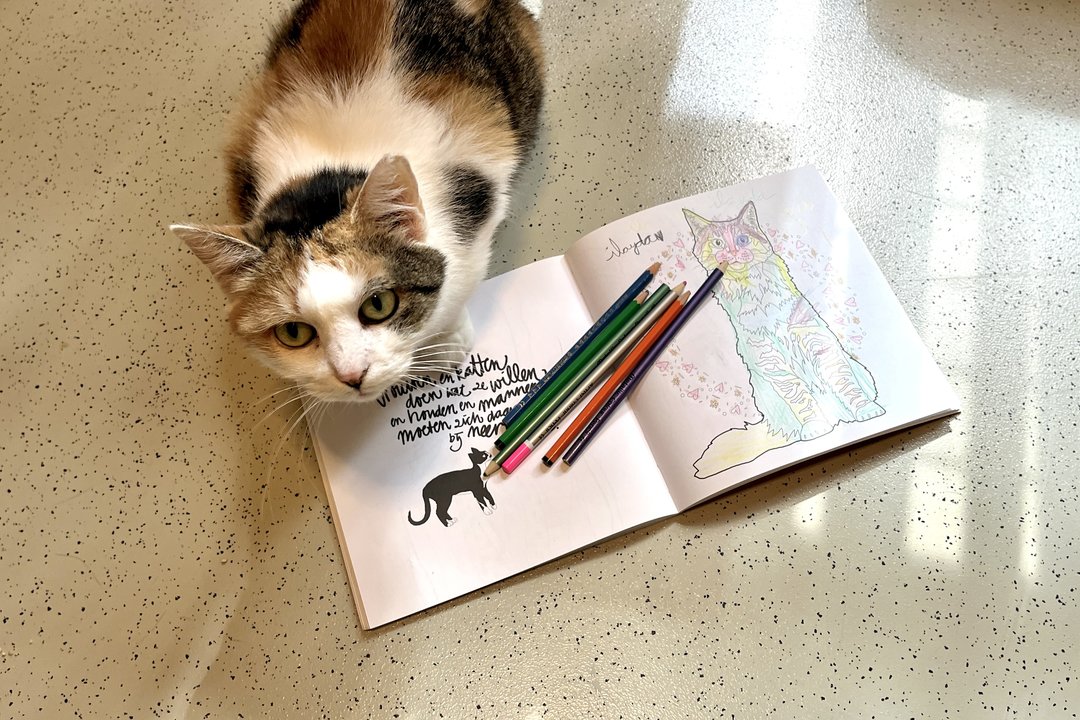 en katten
doen wat ze willen
en honden en mannen
moeten zich daar
bij neer
ilayda